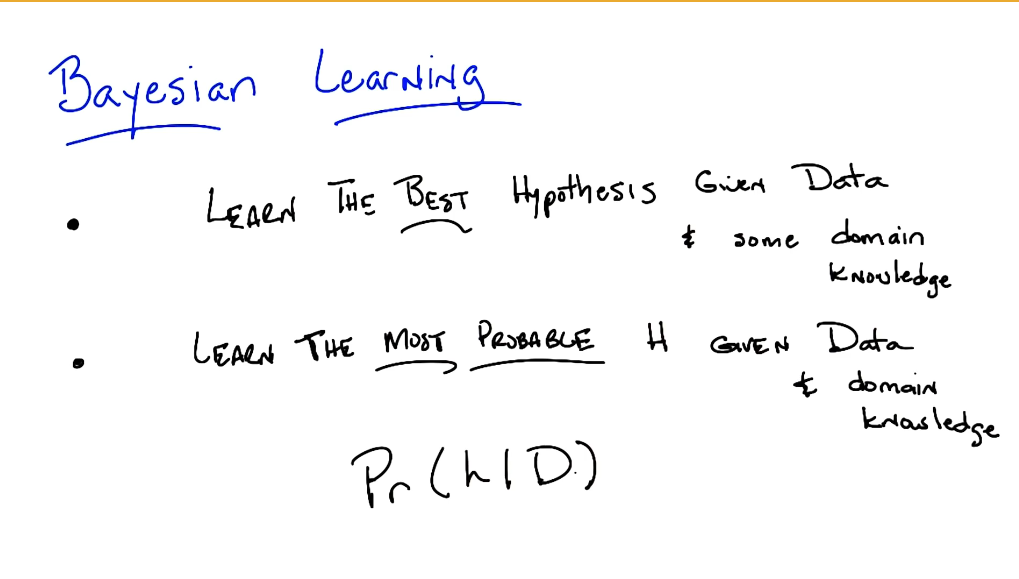 Bayesian Learning
• LEARN THE BEST Hypothesis Given Data
& some domain
knowledge
• LEARN THE MOST PROBABLE H GIVEN Data
& domain
knowledge
Pr(h|D)